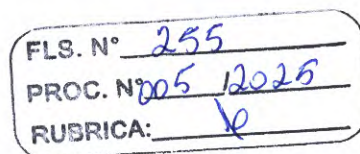 FLS. N° 255
PROC. N° 005 /2025
RUBRICA: